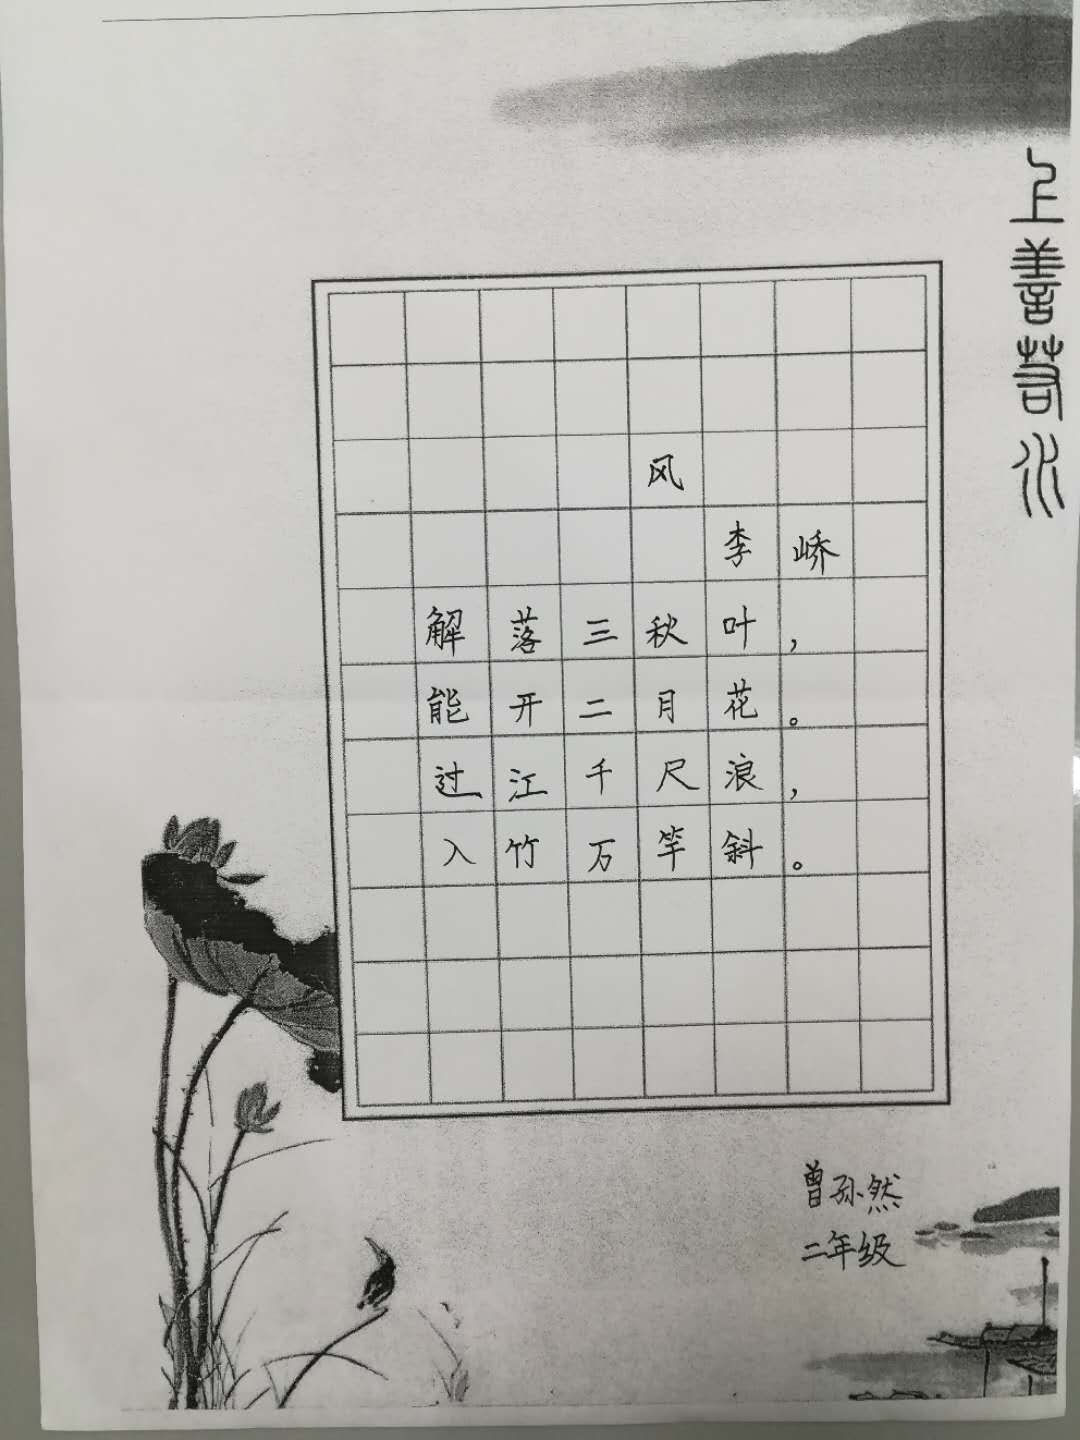 上善若水
风
李峤
解落三秋叶，
能开二月花。
过江千尺浪，
入竹万竿斜。
曾孙然
二年级